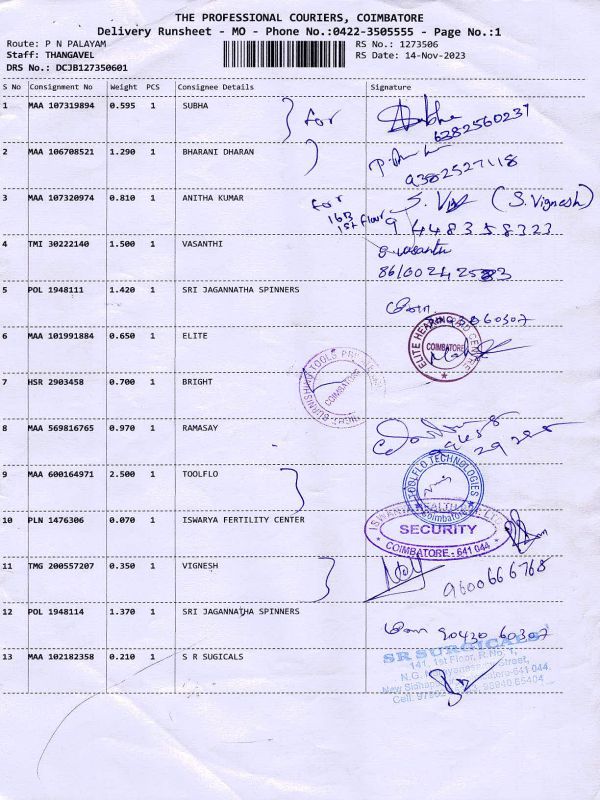 THE PROFESSIONAL COURIERS, COIMBATORE
Delivery Runsheet - MO - Phone No.:0422-3505555 - Page No.:1
Route: P N PALAYAM
RS No.: 1273506
Staff: THANGAVEL
RS Date: 14-Nov-2023
DRS No.: DCJB127350601
S No Consignment No Weight PCS Consignee Details Signature
1 MAA 107319894 0.595 1 SUBHA for Subha
6382560237
2 MAA 106708521 1.290 1 BHARANI DHARAN
9382527118
3 MAA 107320974 0.810 1 ANITHA KUMAR for (S. Vignesh)
16B
1st floor
9448358323
4 TMI 30222140 1.500 1 VASANTHI
5 POL 1948111 1.420 1 SRI JAGANNATHA SPINNERS
60307
6 MAA 101991884 0.650 1 ELITE
ELITE HEARING AID CENTRE
COIMBATORE
7 HSR 2903458 0.700 1 BRIGHT
BURNISHING TOOLS
COIMBATORE
8 MAA 569816765 0.970 1 RAMASAY
9 MAA 600164971 2.500 1 TOOLFLO
TOOLFLO TECHNOLOGIES
Coimbatore
10 PLN 1476306 0.070 1 ISWARYA FERTILITY CENTER
SECURITY
COIMBATORE - 641 044
11 TMG 200557207 0.350 1 VIGNESH
9600666768
12 POL 1948114 1.370 1 SRI JAGANNATHA SPINNERS
90420 60307
13 MAA 102182358 0.210 1 S R SUGICALS
SR SURGICALS
141, 1st Floor, R.No. 1,
Street,
Cell: